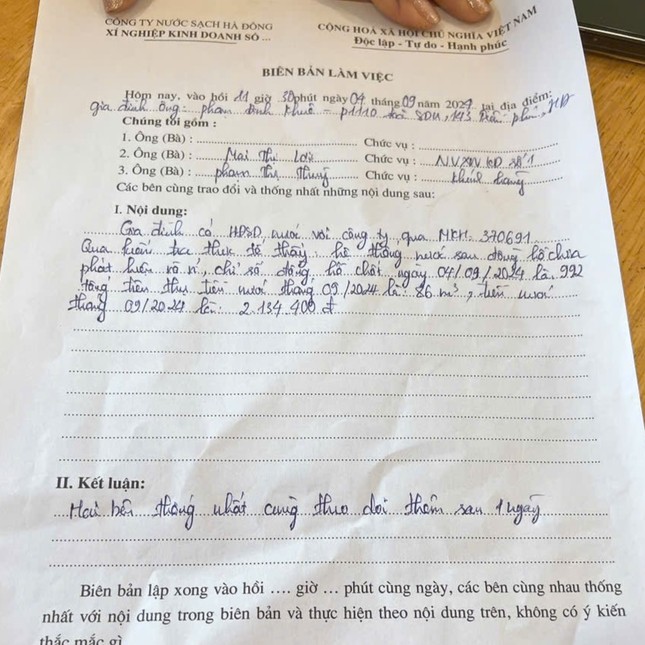 CÔNG TY NƯỚC SẠCH HÀ ĐÔNG
XÍ NGHIỆP KINH DOANH SỐ ...
CỘNG HOÀ XÃ HỘI CHỦ NGHĨA VIỆT NAM
Độc lập - Tự do - Hạnh phúc
BIÊN BẢN LÀM VIỆC
Hôm nay, vào hồi 11 giờ 30 phút ngày 04 tháng 09 năm 2024 tại địa điểm:
gia đình ông: phạm đình Khuê - p1110 toà SDU, 143 trần phú, HĐ
Chúng tôi gồm :
1. Ông (Bà) : Chức vụ :
2. Ông (Bà) : Mai Thị Chức vụ : N.V
3. Ông (Bà) : phạm Thị Chức vụ : khách hàng
Các bên cùng trao đổi và thống nhất những nội dung sau:
I. Nội dung:
Gia đình có HĐSD nước với công ty, qua MKH: 370691
Qua kiểm tra thực tế thấy: hệ thống nước sau đồng hồ chưa
phát hiện rò rỉ, chỉ số đồng hồ chốt ngày 04/09/2024 là 992
tổng tiêu thụ tiền nước tháng 09/2024 là: 86 m³, tiền nước
tháng 09/2024 là: 2.134.400 đ
II. Kết luận:
Hai bên thống nhất cùng theo dõi thêm sau 1 ngày
Biên bản lập xong vào hồi .... giờ ... phút cùng ngày, các bên cùng nhau thống
nhất với nội dung trong biên bản và thực hiện theo nội dung trên, không có ý kiến
thắc mắc gì